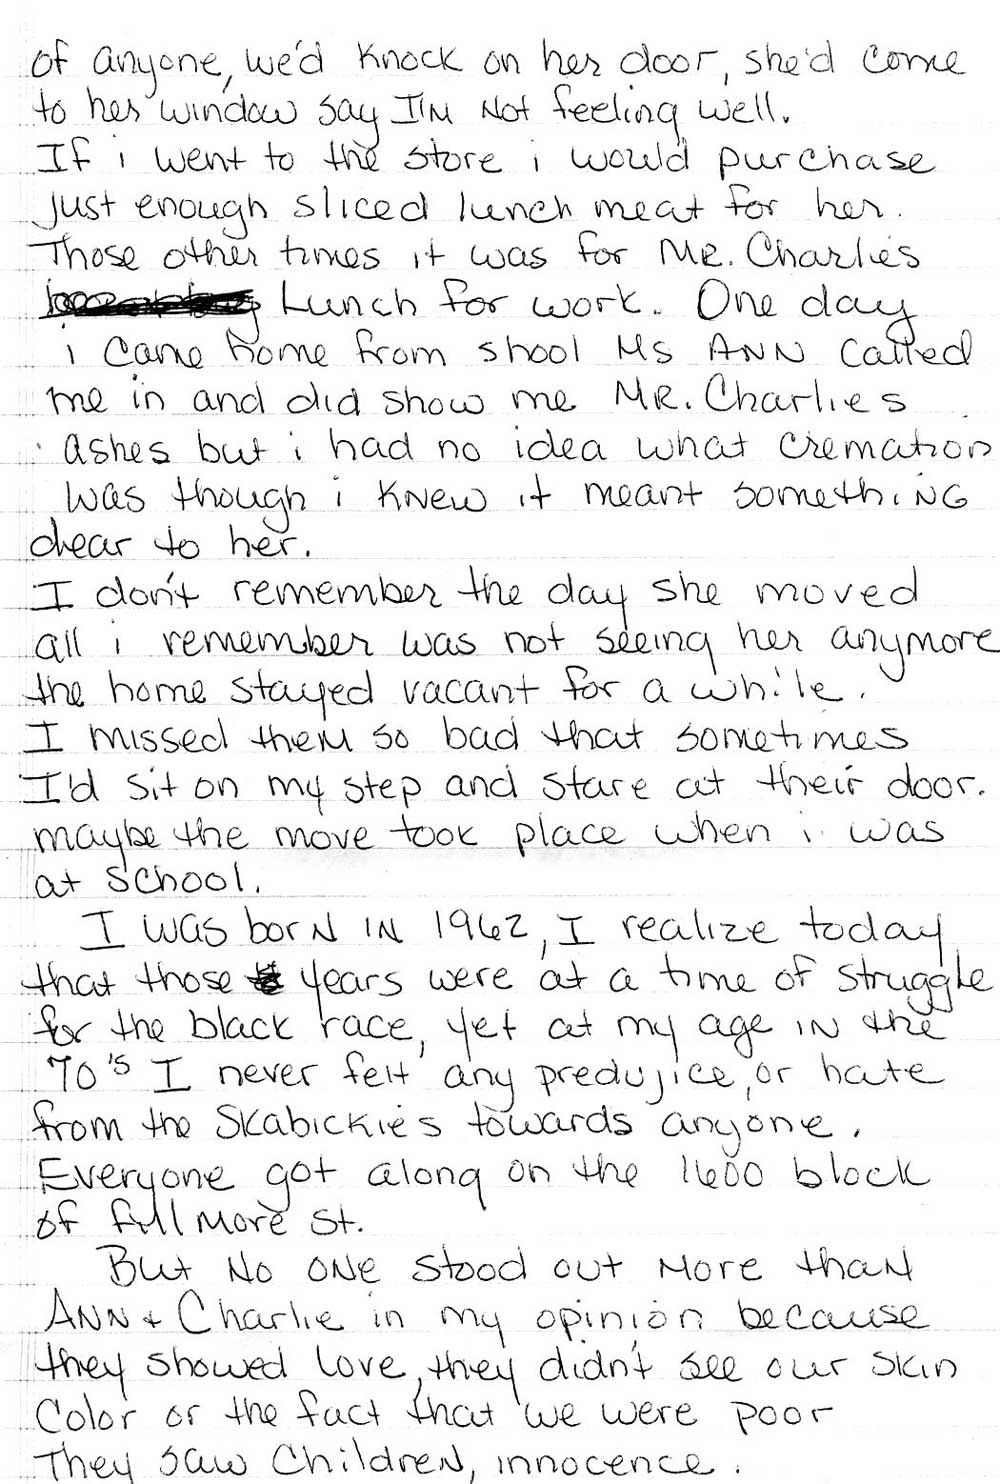 of anyone, we'd knock on her door, she'd come
to her window say I'm not feeling well.
If i went to the store i would purchase
just enough sliced lunch meat for her.
Those other times it was for MR. Charlie's
Lunch for work. One day
i came home from shool Ms ANN called
me in and did show me MR. Charlies
ashes but i had no idea what cremation
was though i knew it meant something
dear to her.
I don't remember the day she moved
all i remember was not seeing her anymore
the home stayed vacant for a while.
I missed them so bad that sometimes
I'd sit on my step and stare at their door.
maybe the move took place when i was
at school.
I was born in 1962, I realize today
that those years were at a time of struggle
for the black race, yet at my age in the
70's I never felt any predujice, or hate
from the Skabickie's towards anyone.
Everyone got along on the 1600 block
of fillmore st.
But no one stood out more than
ANN + Charlie in my opinion because
they showed love, they didn't see our skin
color or the fact that we were poor
They saw children, innocence.